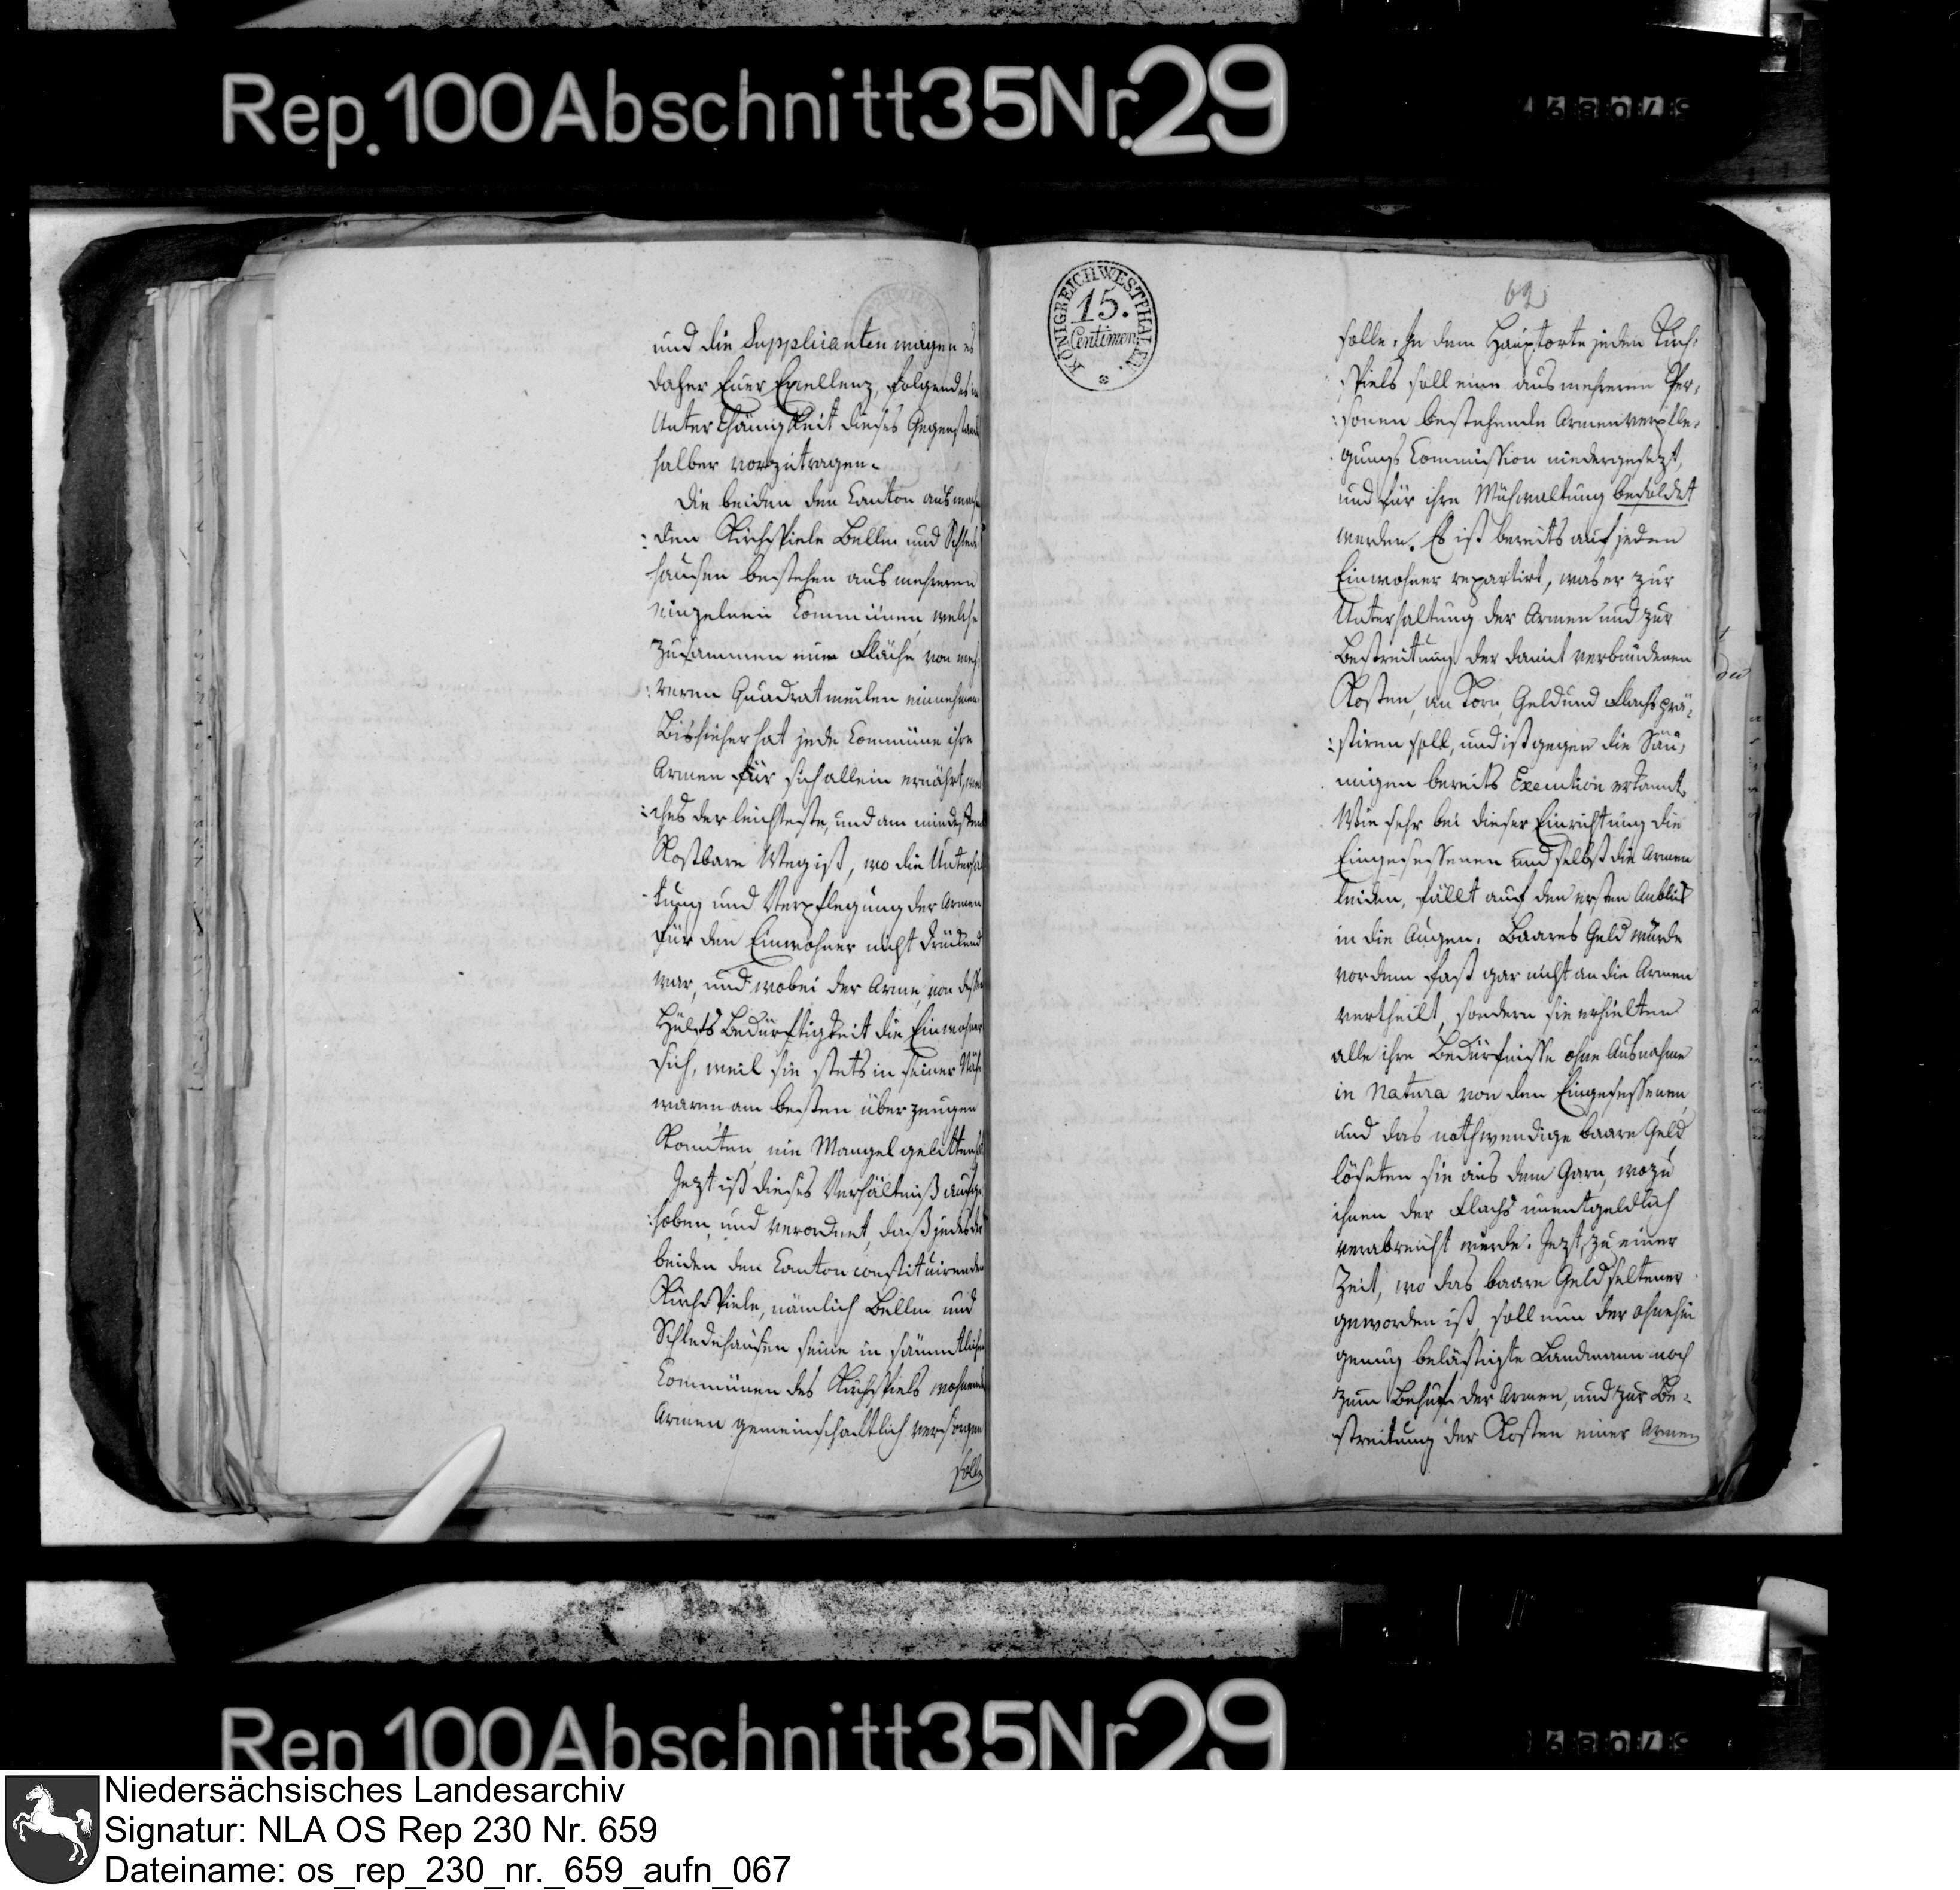 Rep. 100 Abschnitt 35 Nr. 29
und die Supplicanten wagen es
daher Euer Excellenz, folgendes in
Unterthänigkeit dieses Gegenstands
halber vorzutragen.
Die beiden den Canton ausmachen
:den Kirchspiele Bellm und Schlede
hausen bestehen aus mehreren
einzelnen Communen, welche
zusammen eine Fläche von meh
:reren Quadratmeilen einnehmen.
Bishieher hat jede Commune ihre
Armen für sich allein ernährt, wel
:ches der leichteste, und am mindesten
Kostbare Weg ist, wo die Unterhal
-tung und Verpflegung der Armen
für den Einwohner nicht drückend
war, und wobei der Arme, von dessen
Hülfs Bedürftigkeit die Einwohner
sich, weil sie stets in seiner Nähe
waren am besten überzeugen
Konnten, nie Mangel gelitten
Jezt ist dieses Verhältniß aufge
:hoben, und verordnet, daß jedes der
beiden den Canton constituirenden
Kirchspiele, nämlich Bellm und
Schledehausen seine in sämmtlichen
Communen des Kirchspiels wohnenden
Armen gemeinschaftlich versorgen
solle
KÖNIGREICH WESTPHALEN.
15.
Centimen
62
solle. In dem Hauptorte jeden Kirch:
spiels soll eine aus mehreren Per:
:sonen bestehende Armenverpfle:
gungs Commission niedergesezt,
und für ihre Mühwaltung besoldet
werden. Es ist bereits auf jeden
Einwohner repartirt, was er zur
Unterhaltung der Armen und zur
Bestreitung der damit verbundenen
Kosten, an Korn, Geld und Flachs prä:
:stiren soll, und ist gegen die Säu:
migen bereits Execution erkannt.
Wie sehr bei dieser Einrichtung die
Eingesessenen und selbst die Armen
leiden, fällt auf den ersten Anblick
in die Augen. Baares Geld wurde
vordem fast gar nicht an die Armen
vertheilt, sondern sie erhielten
alle ihre Bedürfnisse ohne Ausnahme
in Natura von den Eingesessenen,
und das nothwendige baare Geld
löseten sie aus dem Garn, wozu
ihnen der Flachs unentgeldlich
verabreicht wurde. Jezt, zu einer
Zeit, wo das baare Geld seltener
geworden ist, soll nun der ohnehin
genug belästigte Landmann noch
zum Behuf der Armen, und zur Be:
streitung der Kosten einer Armen
Rep 100 Abschnitt 35 Nr 29
Niedersächsisches Landesarchiv
Signatur: NLA OS Rep 230 Nr. 659
Dateiname: os_rep_230_nr._659_aufn_067